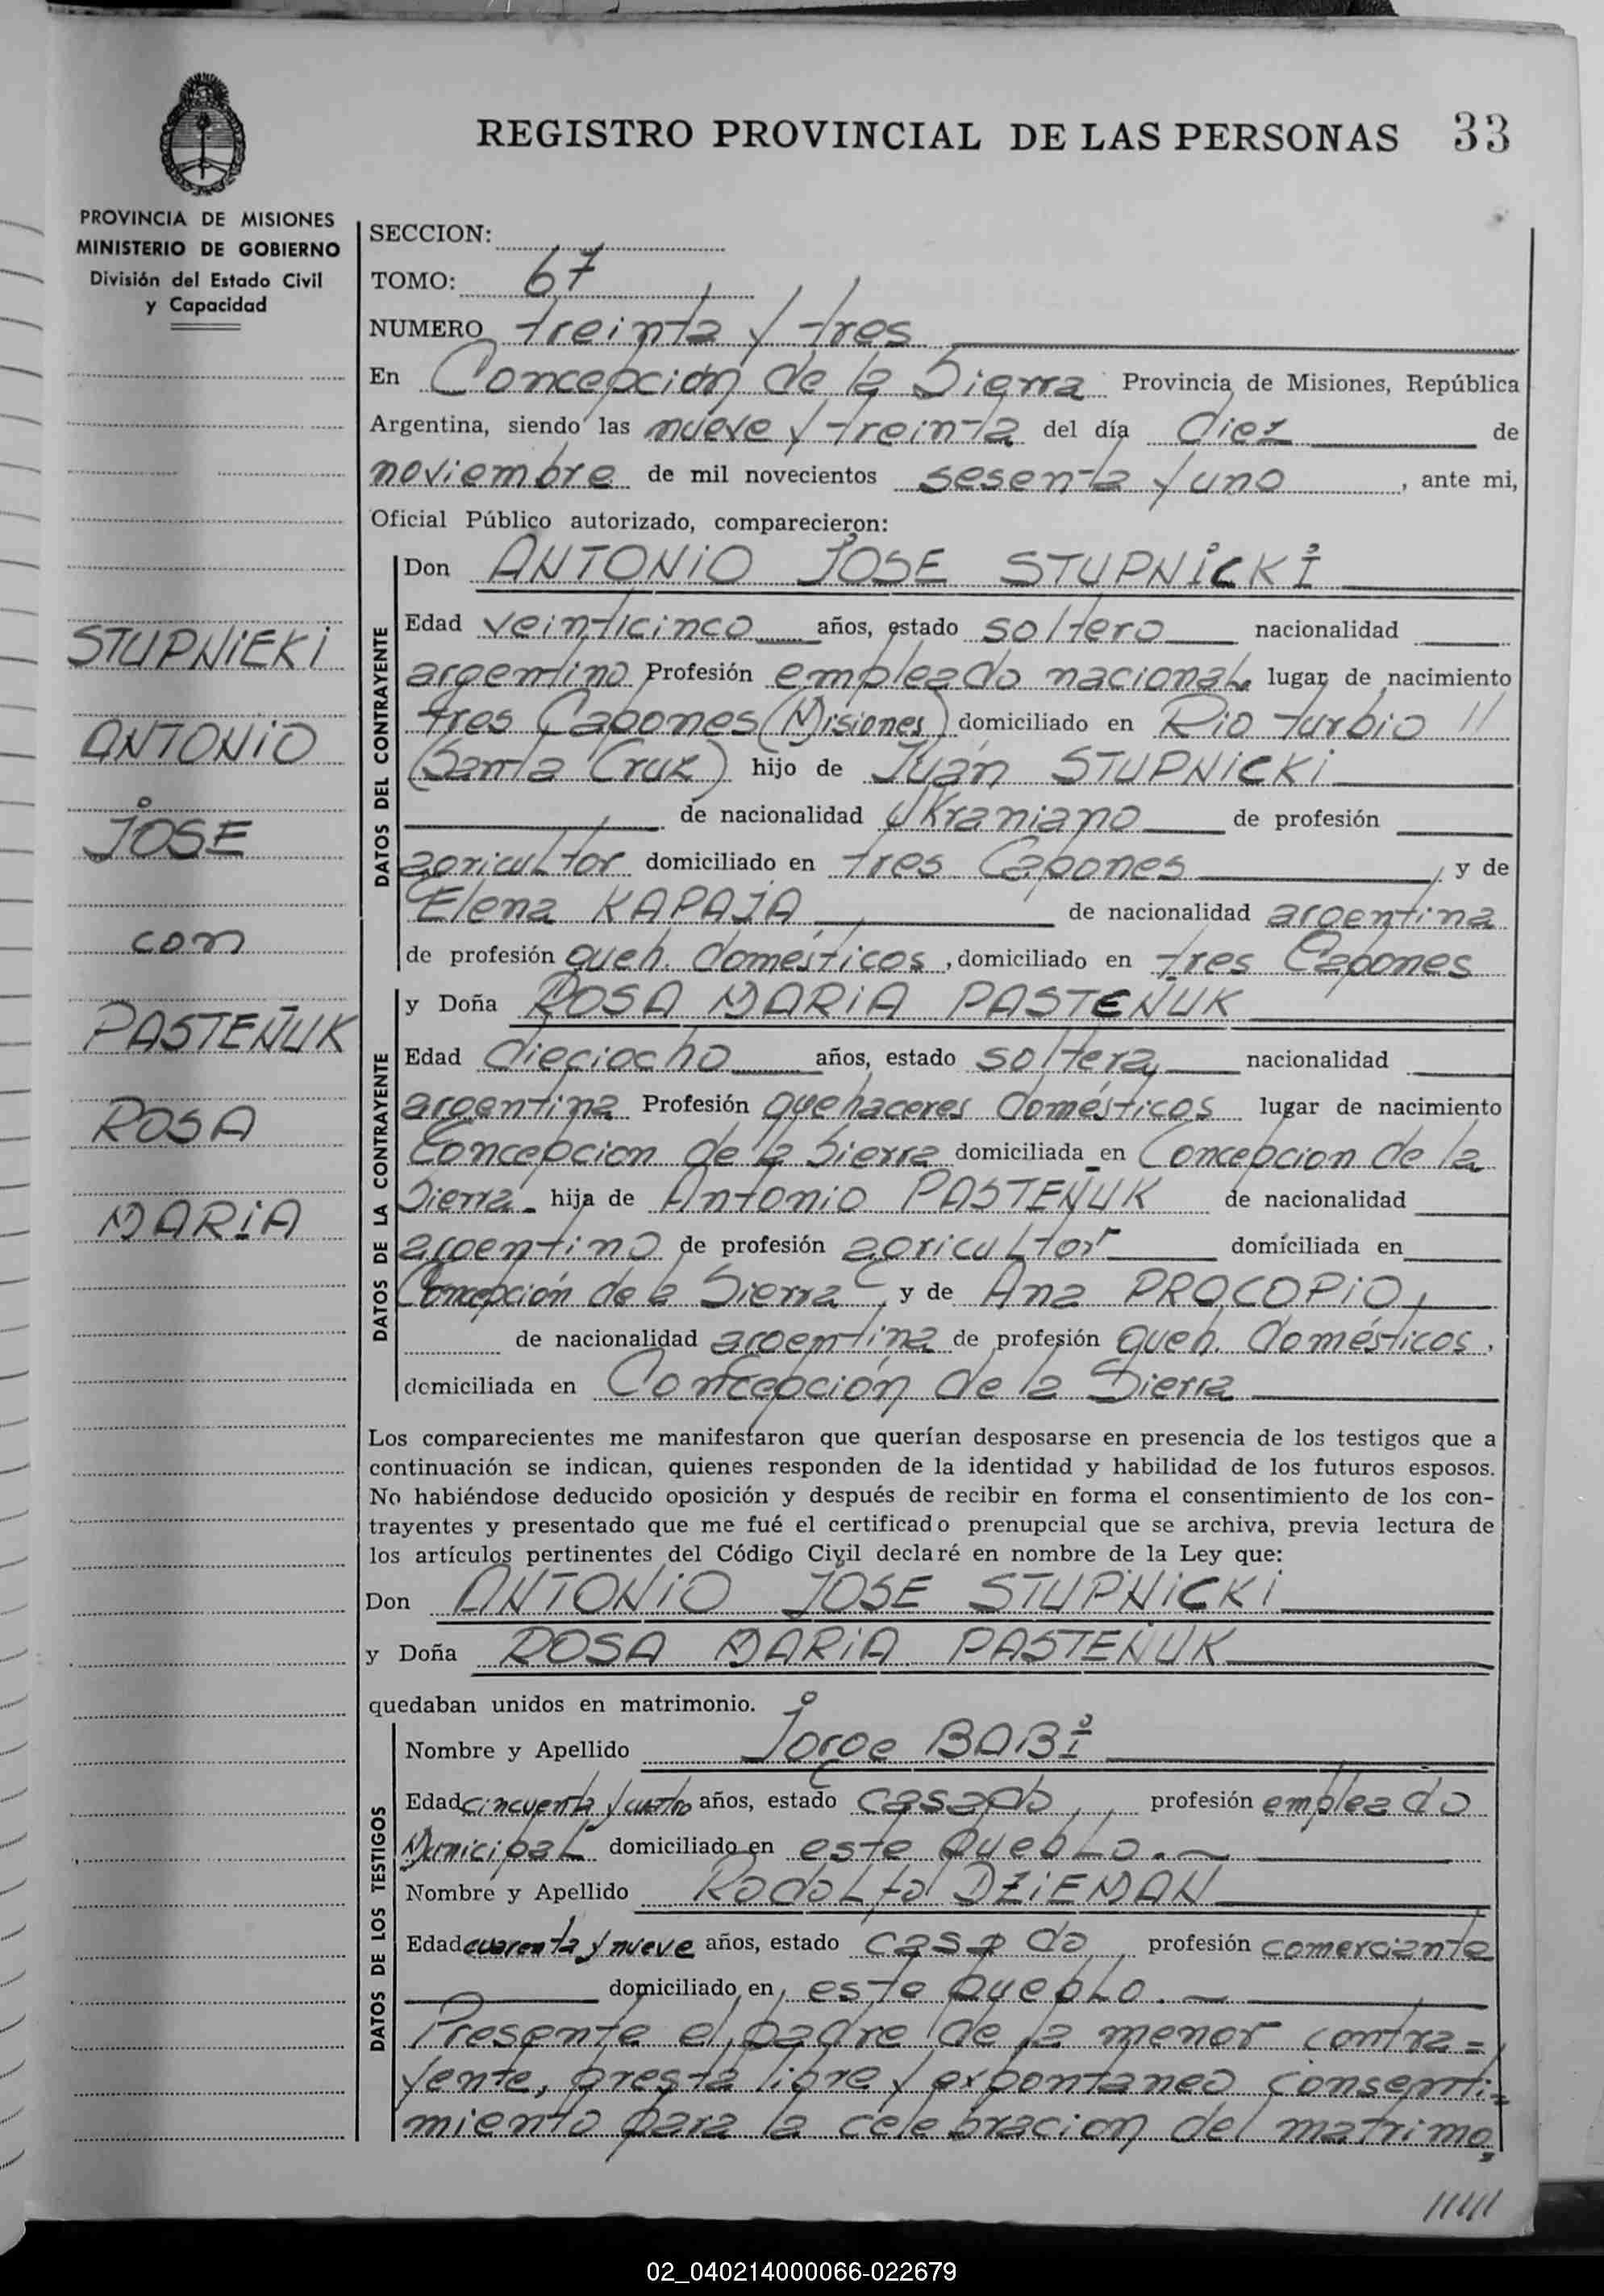 REGISTRO PROVINCIAL DE LAS PERSONAS 33
PROVINCIA DE MISIONES
MINISTERIO DE GOBIERNO
División del Estado Civil
y Capacidad
STUPNIEKI
ANTONIO
JOSE
con
PASTEÑUK
ROSA
MARIA
SECCION:
TOMO: 67
NUMERO treinta y tres
En Concepción de la Sierra Provincia de Misiones, República
Argentina, siendo las nueve y treinta del día Diez de
noviembre de mil novecientos sesenta y uno, ante mi,
Oficial Público autorizado, comparecieron:
DATOS DEL CONTRAYENTE
Don ANTONIO JOSE STUPNICKI
Edad veinticinco años, estado soltero nacionalidad
argentino Profesión empleado nacional lugar de nacimiento
tres Capones (Misiones) domiciliado en Rio turbio //
(Santa Cruz) hijo de Juán STUPNICKI
de nacionalidad Ukraniano de profesión
agricultor domiciliado en tres Capones y de
Elena KAPAJA, de nacionalidad argentina
de profesión queh. domésticos, domiciliado en tres Capones
DATOS DE LA CONTRAYENTE
y Doña ROSA MARIA PASTEÑUK
Edad dieciocho años, estado soltera, nacionalidad
argentina Profesión quehaceres domésticos lugar de nacimiento
Concepcion de la Sierra domiciliada en Concepcion de la
Sierra hija de Antonio PASTEÑUK de nacionalidad
argentino de profesión agricultor domiciliada en
Concepción de la Sierra y de Ana PROCOPIO,
de nacionalidad argentina de profesión queh. domésticos,
domiciliada en Concepción de la Sierra
Los comparecientes me manifestaron que querían desposarse en presencia de los testigos que a
continuación se indican, quienes responden de la identidad y habilidad de los futuros esposos.
No habiéndose deducido oposición y después de recibir en forma el consentimiento de los con-
trayentes y presentado que me fué el certificado prenupcial que se archiva, previa lectura de
los artículos pertinentes del Código Civil declaré en nombre de la Ley que:
Don ANTONIO JOSE STUPNICKI
y Doña ROSA MARIA PASTEÑUK
quedaban unidos en matrimonio.
DATOS DE LOS TESTIGOS
Nombre y Apellido Jorge BABI
Edad cincuenta y cuatro años, estado casado, profesión empleado
Municipal domiciliado en este pueblo.
Nombre y Apellido Rodolfo DZIEMAN
Edad cuarenta y nueve años, estado casado, profesión comerciante
domiciliado en este pueblo.
Presente el padre de la menor contra=
yente, presta libre y expontaneo consenti=
miento para la celebracion del matrimo=
//////
02_040214000066-022679